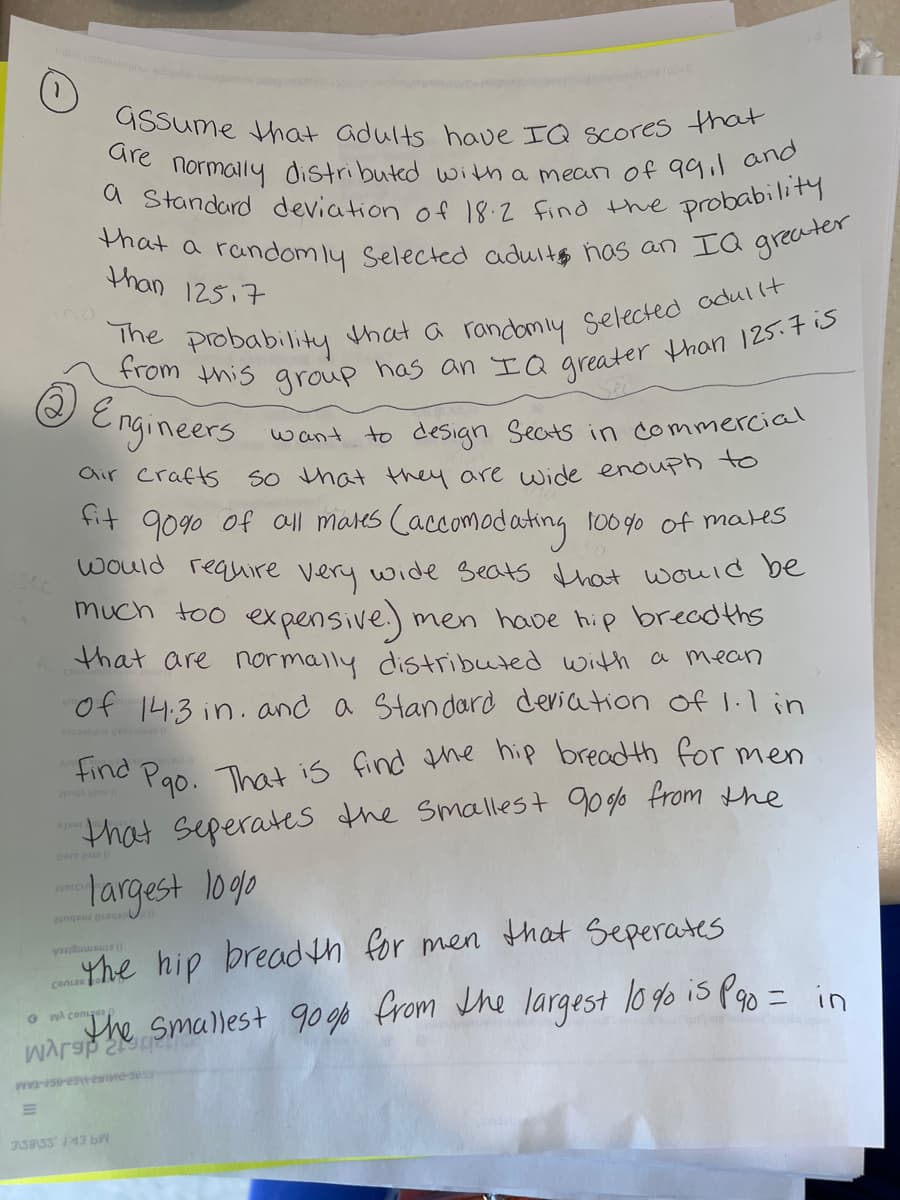 ①
assume that adults have IQ scores that
are normally distributed with a mean of 99.1 and
a Standard deviation of 18.2 find the probability
that a randomly Selected adults has an IQ greater
than 125.7
The probability that a randomly Selected adullt
from this group has an IQ greater than 125.7 is
② Engineers want to design Seats in commercial
air crafts so that they are wide enouph to
fit 90% of all males (accomodating 100% of males
would require very wide Seats that would be
much too expensive.) men have hip breadths
that are normally distributed with a mean
of 14.3 in. and a Standard deviation of 1.1 in
find P90. That is find the hip breadth for men
that seperates the Smallest 90% from the
largest 10%
The hip breadth for men that Seperates
the Smallest 90% from the largest 10% is P90 = in